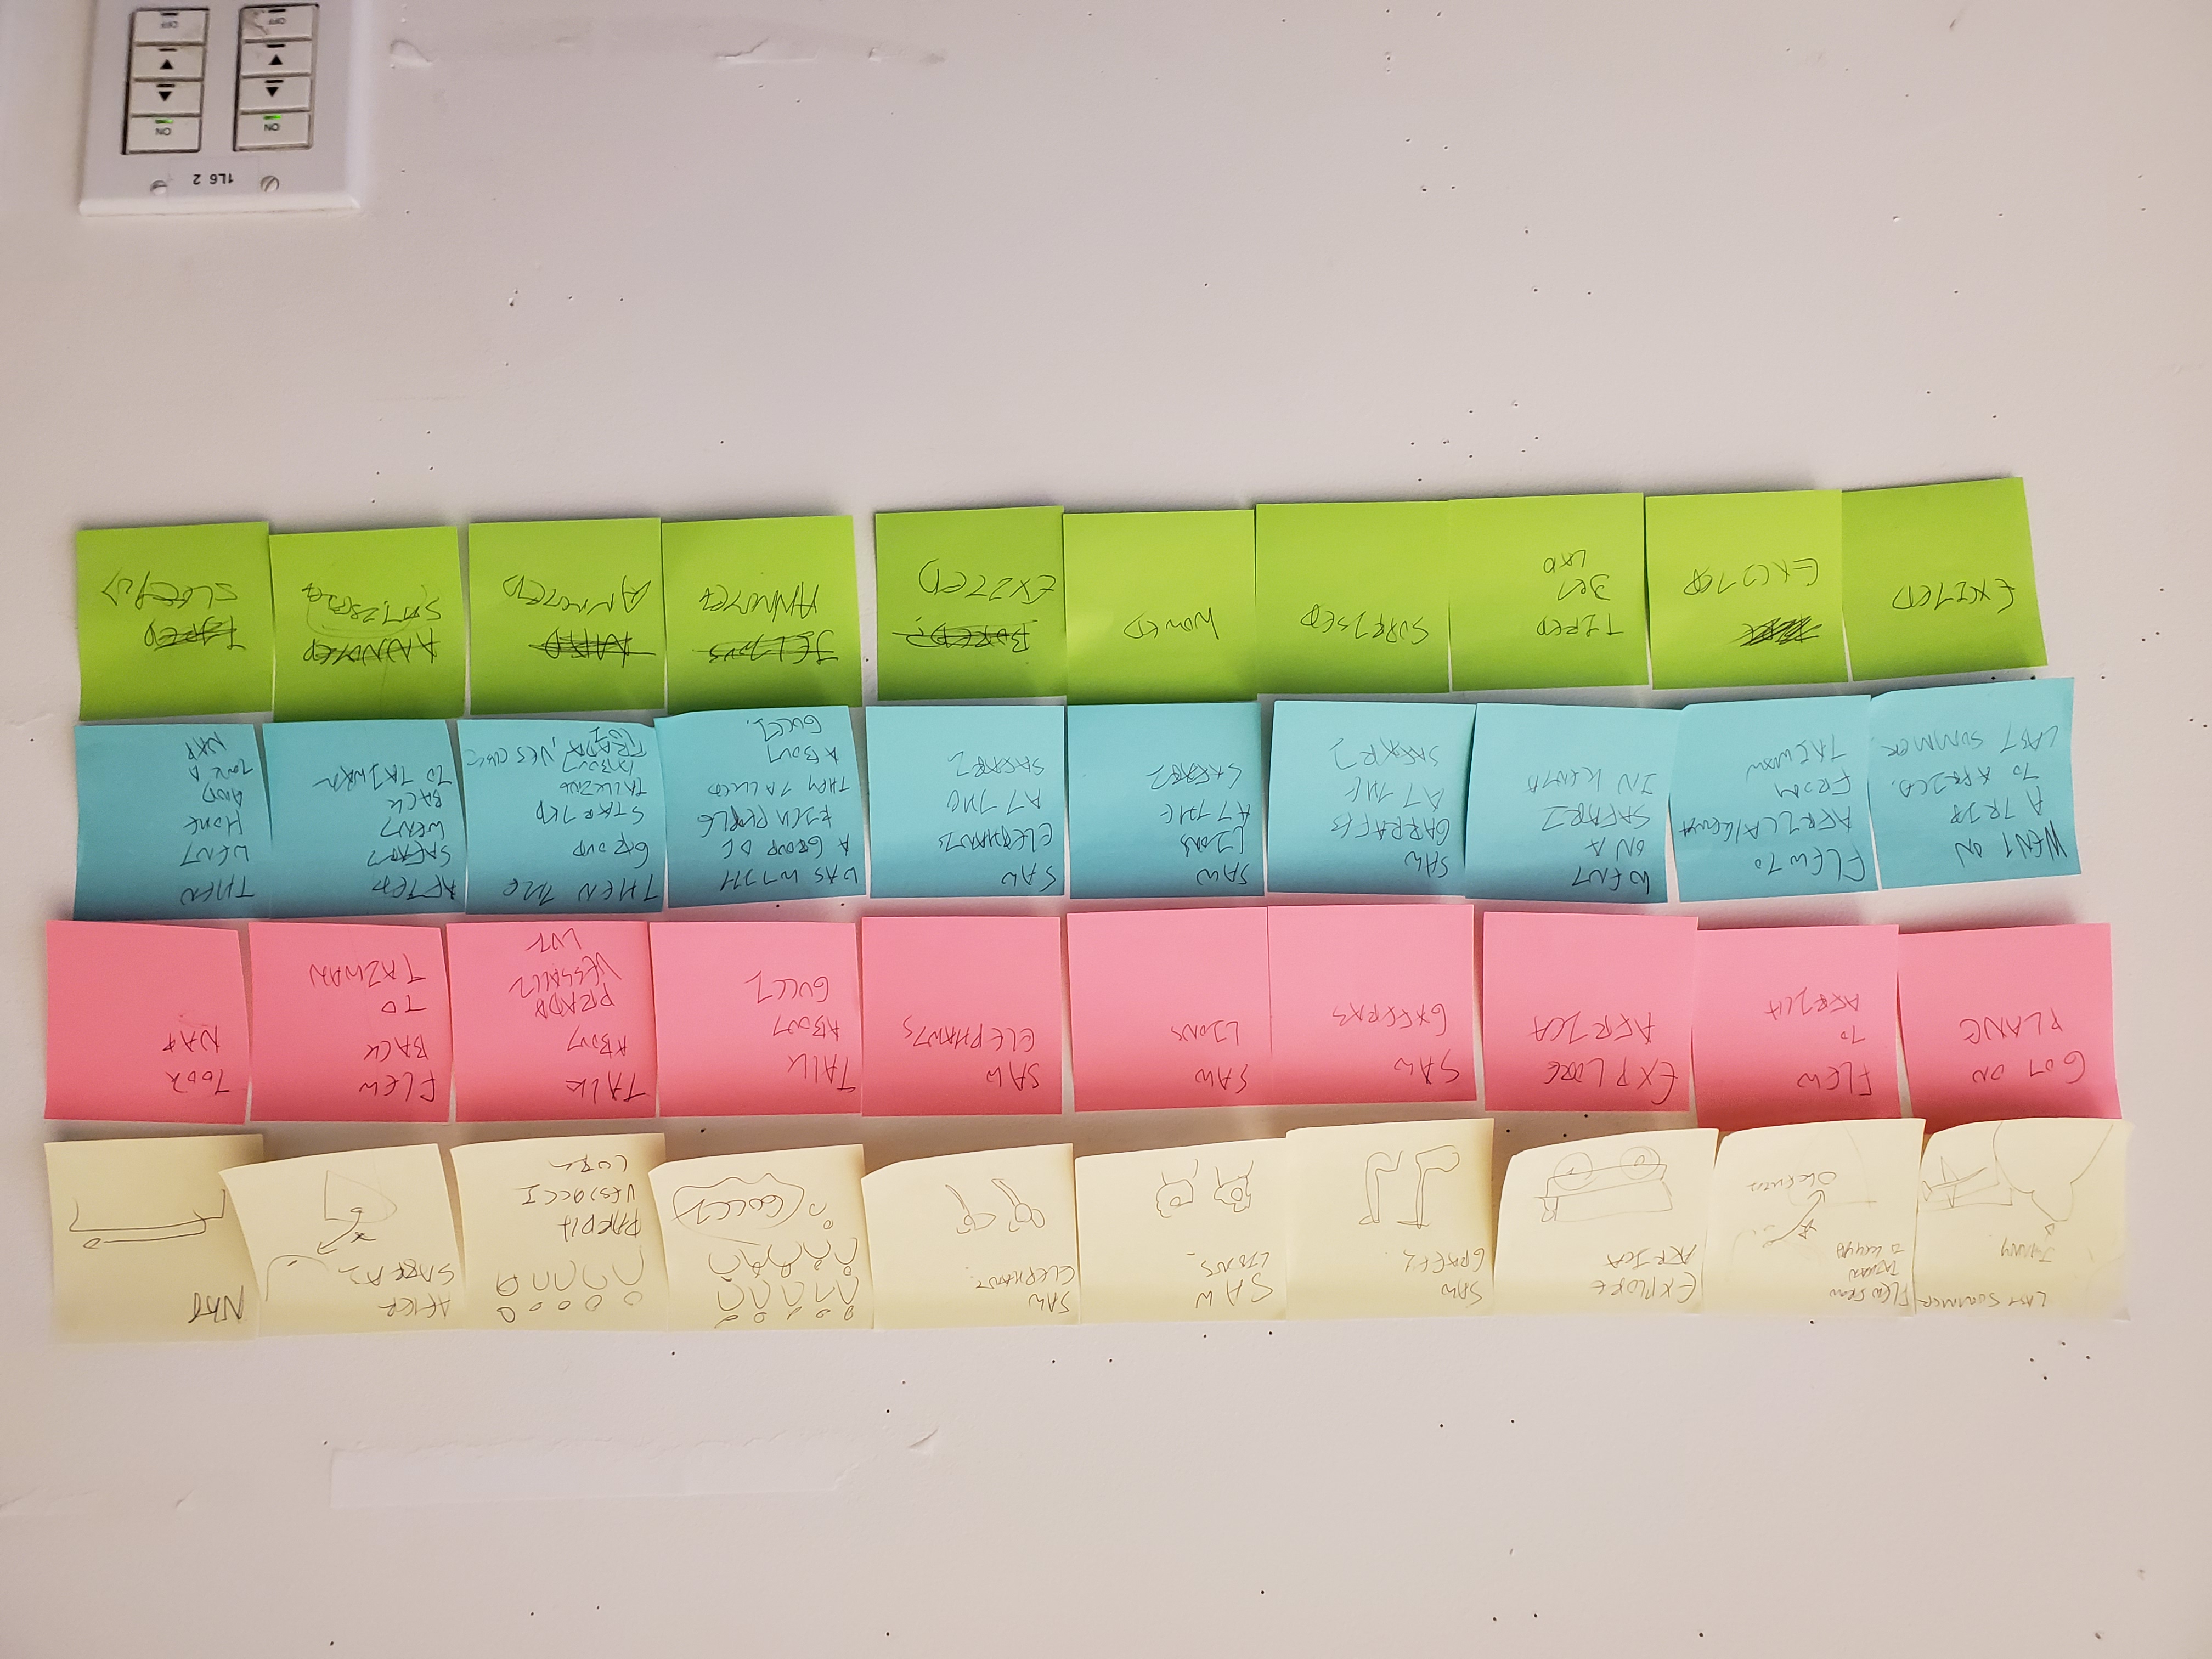 LAST SUMMER
JONNY
FLEW FROM
TAIWAN
TO KENYA
EXPLORE
AFRICA
SAW
GRAFFS.
SAW
LIONS.
SAW
ELEPHANT.
GUCCI
PARDA
AFTER
NAP
GOT ON
PLANE
FLEW
TO
AFRICA
EXPLORE
AFRICA
SAW
SAW
LIONS
SAW
ELEPHANTS
TALK
ABOUT
GUCCI
TALK
ABOUT
PRADA
FLEW
BACK
TO
TAIWAN
TOOK
NAP
WENT ON
A TRIP
TO AFRICA.
LAST SUMMER.
FLEW TO
AFRICA/KENYA
FROM
TAIWAN
WENT
ON A
SAFARI
IN KENYA
SAW
GARRAFFS
AT THE
SAFARI
SAW
LIONS
AT THE
SAFARI
SAW
ELEPHANTS
AT THE
SAFARI
WAS WITH
A GROUP OF
RICH PEOPLE
THEY TALKED
ABOUT
GUCCI.
THEN THE
GROUP
STARTED
TALKING
ABOUT
PRADA,
AFTER
SAFARI
WENT
BACK
TO TAIWAN
THEN
WENT
HOME
AND
TOOK A
NAP
EXCITED
EXCITED
TIRED
JET
LAG
SUPRISED
WOWED
BORED?
EXITED
JELIOUS
ANNOYED
MAD
ANNOYED
ANNOYED
TIRED
SLEEPY
1L6 2
ON
ON
OFF
OFF